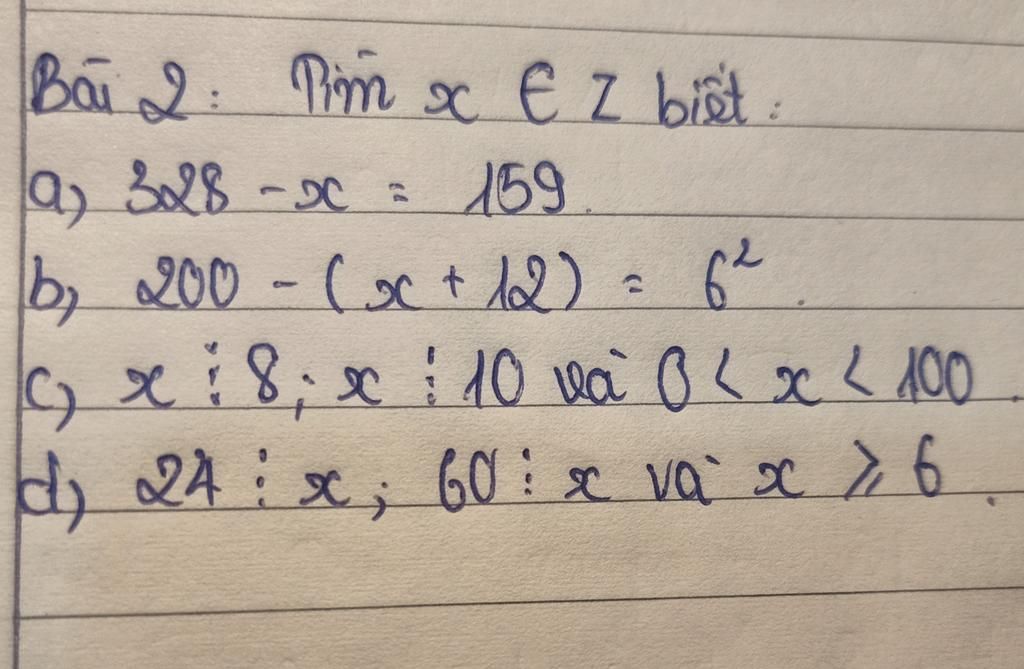 Bài 2: Tìm x ∈ Z biết:
a) 328 - x = 159.
b) 200 - (x + 12) = 6².
c) x ⋮ 8; x ⋮ 10 và 0 < x < 100.
d) 24 ⋮ x; 60 ⋮ x và x ⩾ 6.